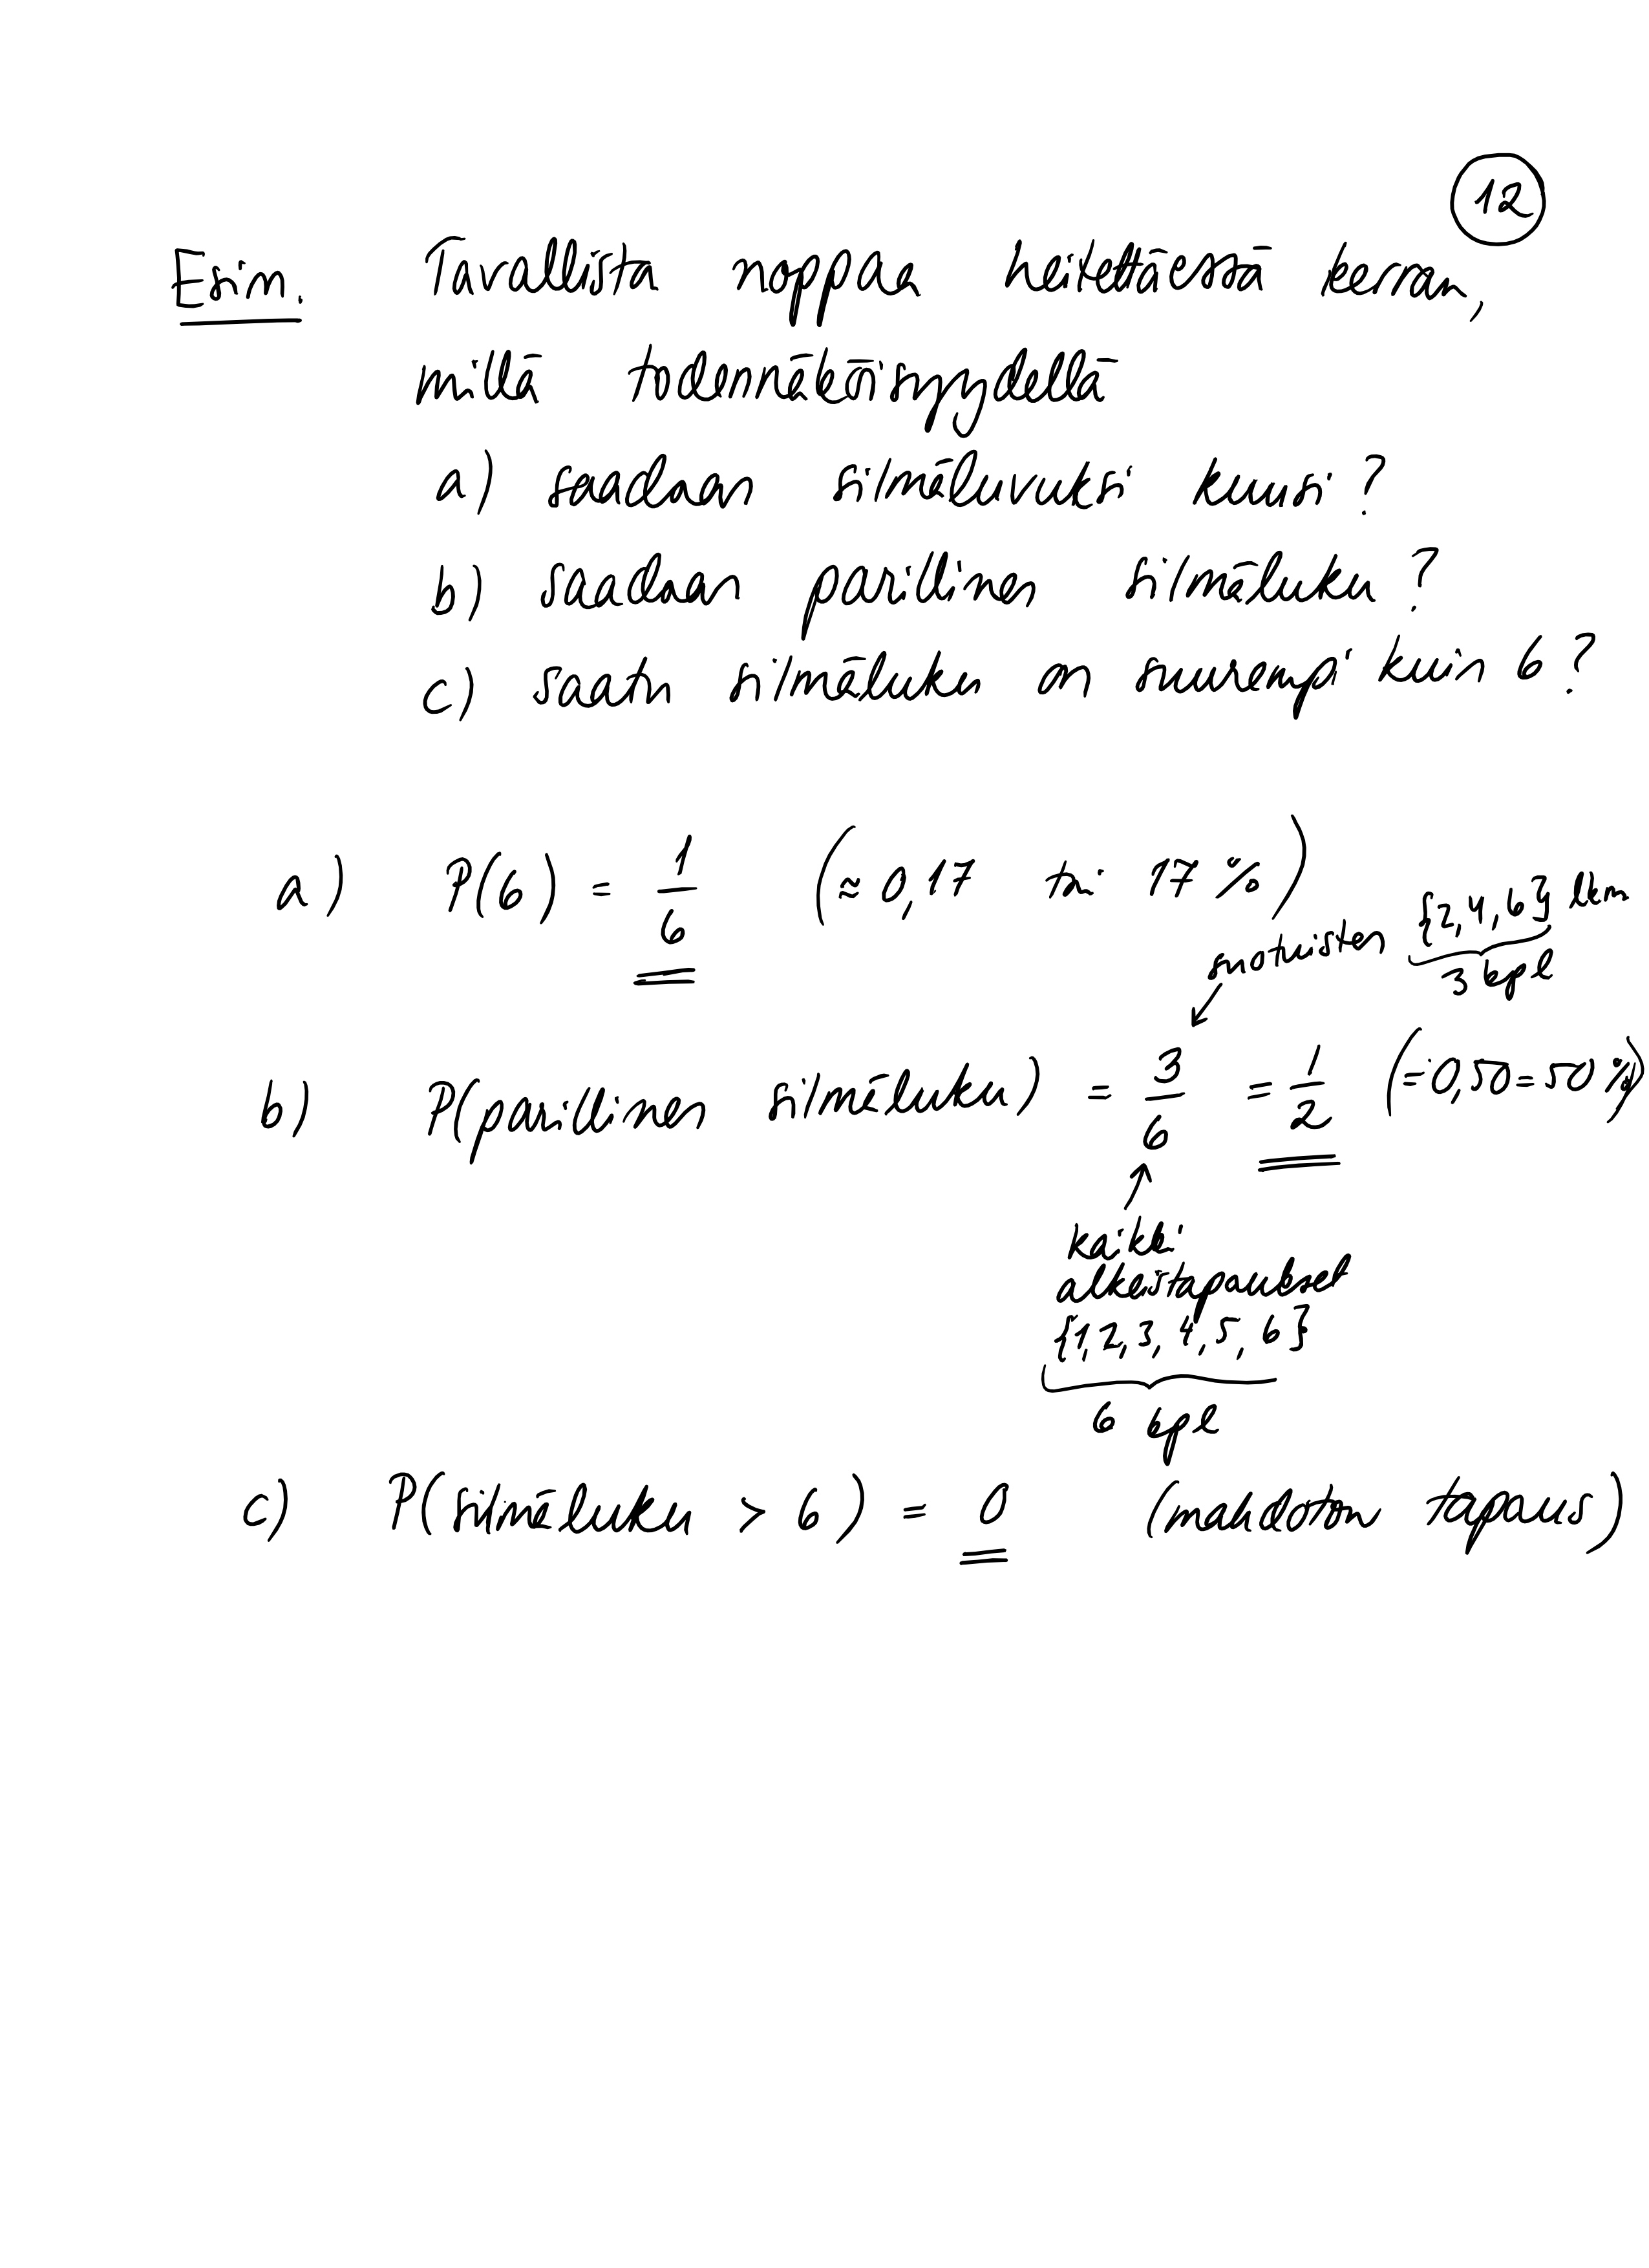 12
Esim. Tavallista noppaa heitettäessä kerran,
millä todennäköisyydellä
a) saadaan silmäluvuksi kuusi?
b) saadaan parillinen silmäluku?
c) saatu silmäluku on suurempi kuin 6?
a) P(6) = 1/6 (≈ 0,17 tai 17 %)
suotuisten {2, 4, 6} lkm
3 kpl
b) P(parillinen silmäluku) = 3/6 = 1/2 (= 0,50 = 50 %)
kaikki
alkeistapaukset
{1, 2, 3, 4, 5, 6}
6 kpl
c) P(silmäluku > 6) = 0 (mahdoton tapaus)